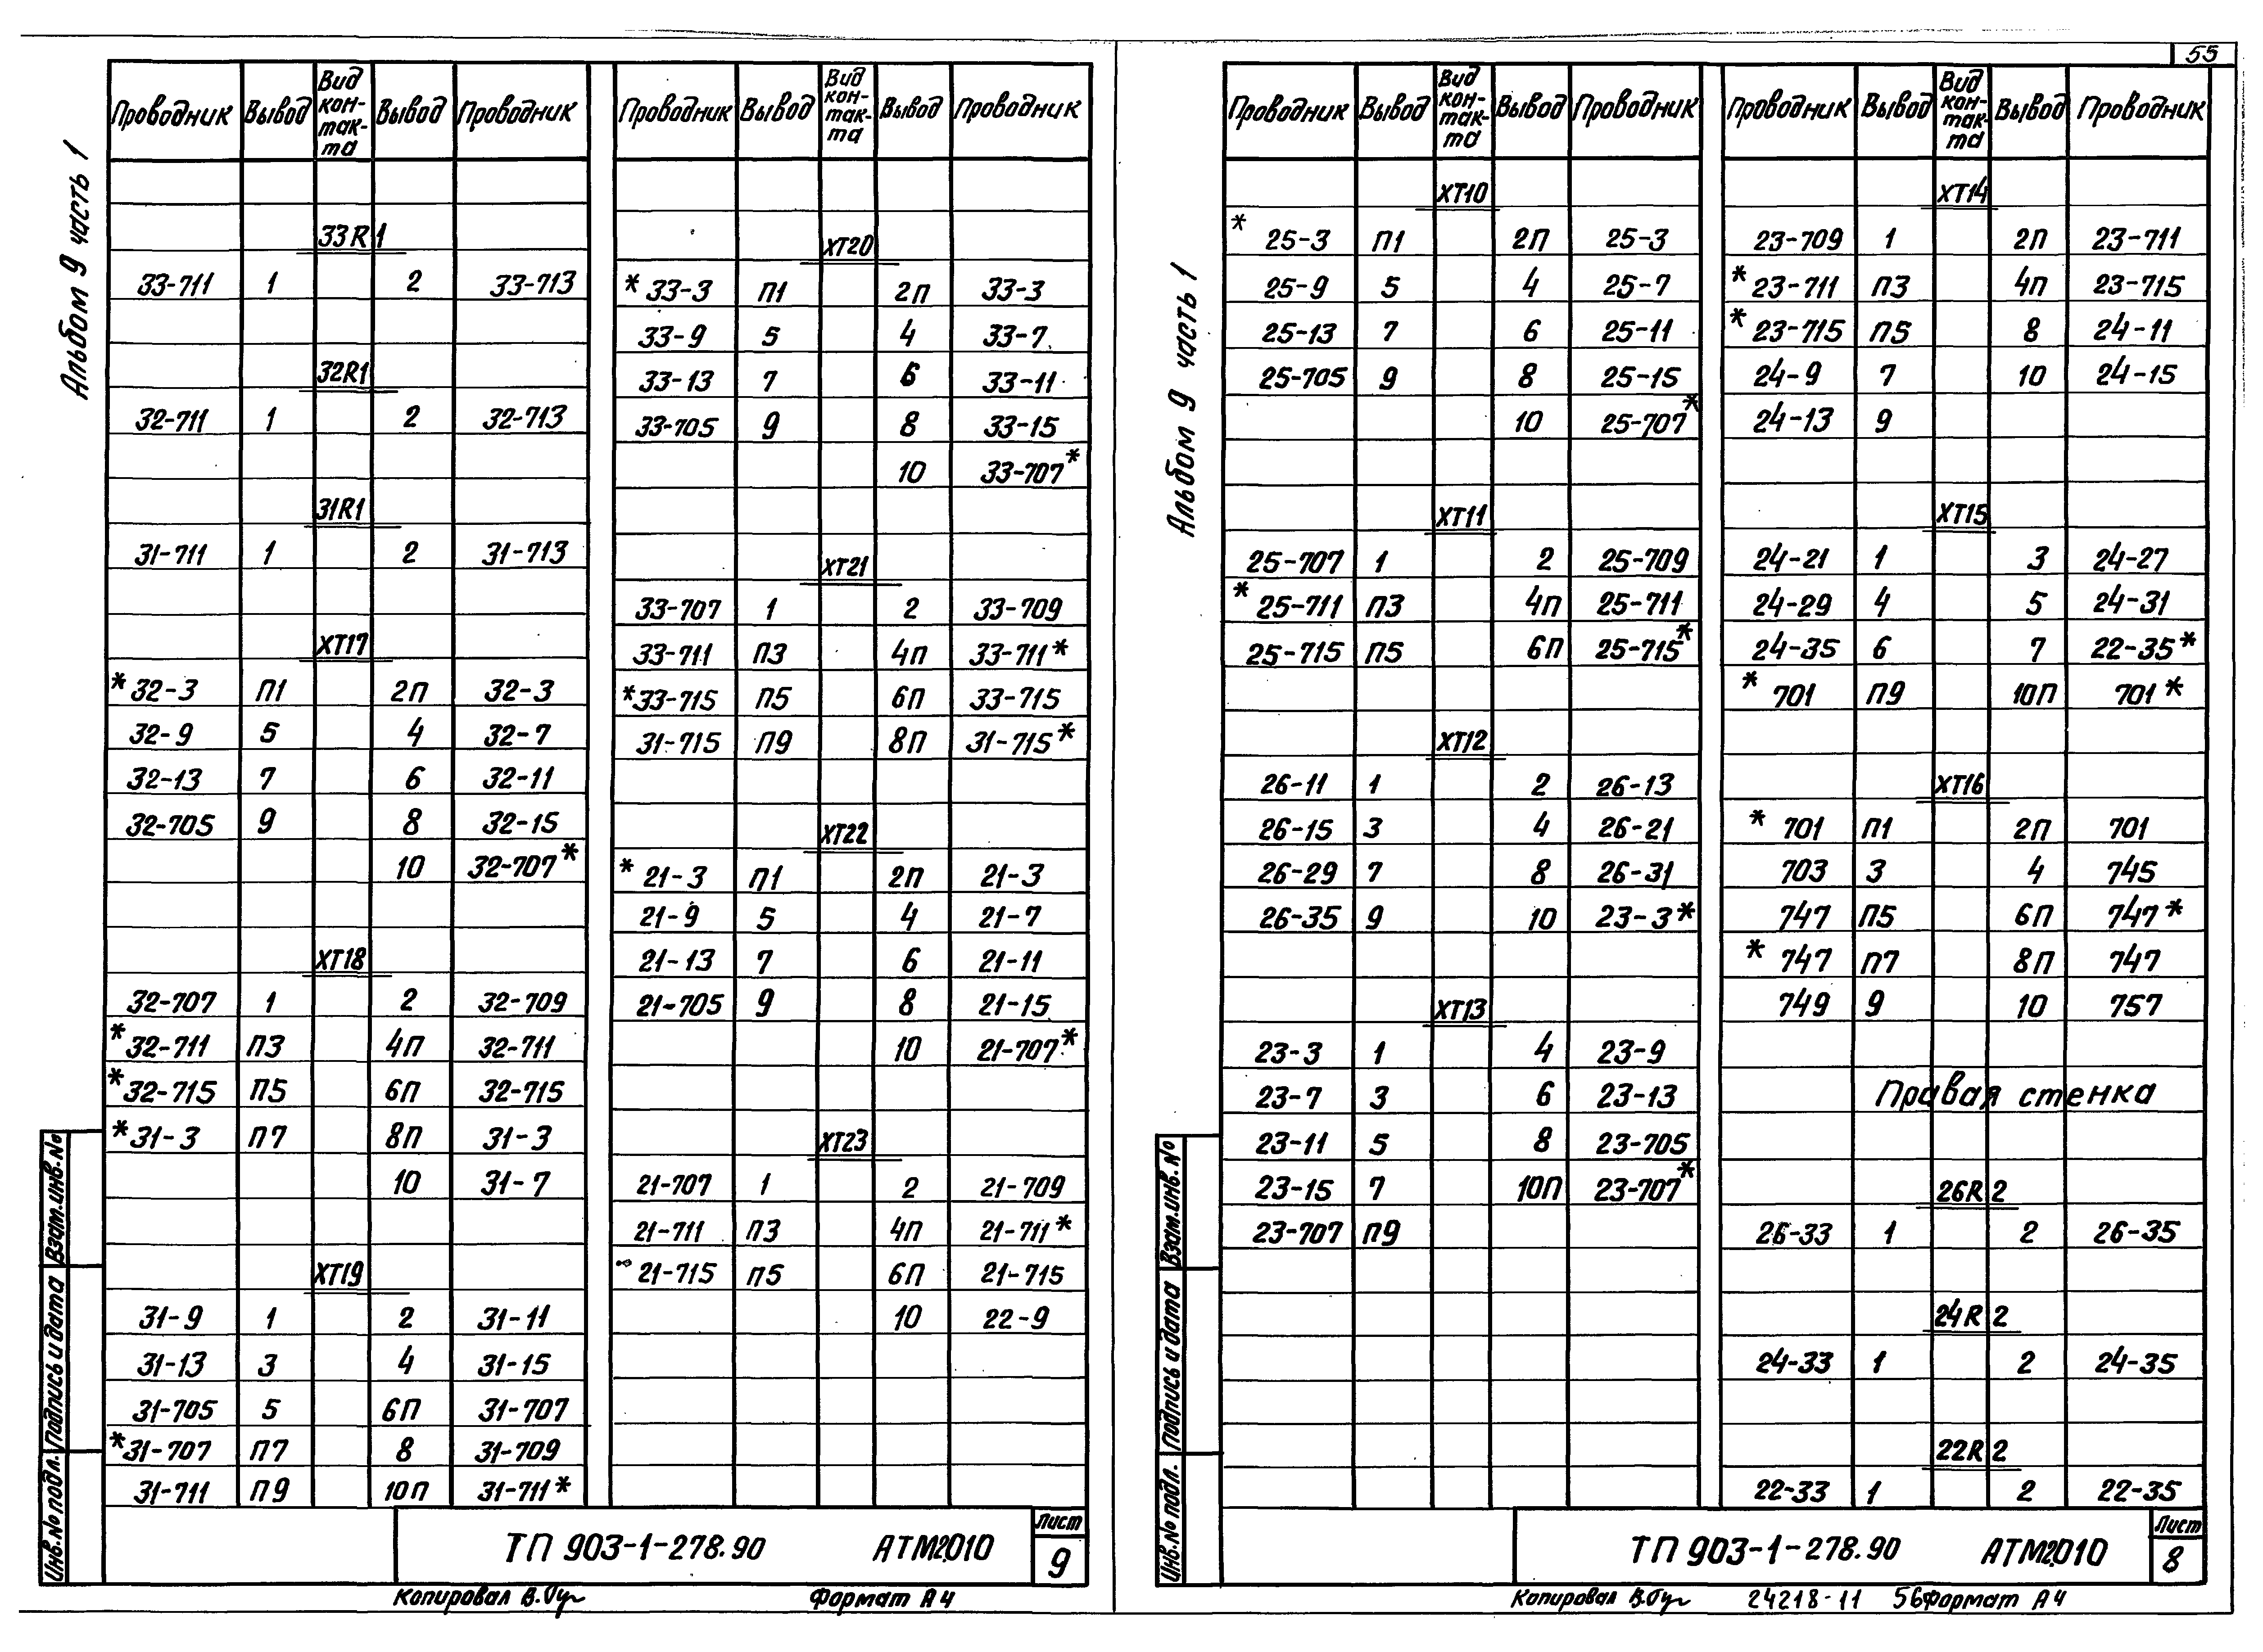 55
Альбом 9 часть 1
Проводник Вывод Вид кон-такта Вывод Проводник
33R1
33-711 1 2 33-713
32R1
32-711 1 2 32-713
31R1
31-711 1 2 31-713
XT17
*32-3 П1 2П 32-3
32-9 5 4 32-7
32-13 7 6 32-11
32-705 9 8 32-15
10 32-707*
XT18
32-707 1 2 32-709
*32-711 П3 4П 32-711
*32-715 П5 6П 32-715
*31-3 П7 8П 31-3
10 31-7
XT19
31-9 1 2 31-11
31-13 3 4 31-15
31-705 5 6П 31-707
*31-707 П7 8 31-709
31-711 П9 10П 31-711*
Проводник Вывод Вид кон-такта Вывод Проводник
XT20
*33-3 П1 2П 33-3
33-9 5 4 33-7
33-13 7 6 33-11
33-705 9 8 33-15
10 33-707*
XT21
33-707 1 2 33-709
33-711 П3 4П 33-711*
*33-715 П5 6П 33-715
31-715 П9 8П 31-715*
XT22
*21-3 П1 2П 21-3
21-9 5 4 21-7
21-13 7 6 21-11
21-705 9 8 21-15
10 21-707*
XT23
21-707 1 2 21-709
21-711 П3 4П 21-711*
21-715 П5 6П 21-715
10 22-9
Взам.инв.№
Подпись и дата
Инв.№ подл.
ТП 903-1-278.90 АТМ2.010
Лист
9
Копировал Формат А4
Альбом 9 часть 1
Проводник Вывод Вид кон-такта Вывод Проводник
XT10
*25-3 П1 2П 25-3
25-9 5 4 25-7
25-13 7 6 25-11
25-705 9 8 25-15
10 25-707*
XT11
25-707 1 2 25-709
*25-711 П3 4П 25-711
25-715 П5 6П 25-715*
XT12
26-11 1 2 26-13
26-15 3 4 26-21
26-29 7 8 26-31
26-35 9 10 23-3*
XT13
23-3 1 4 23-9
23-7 3 6 23-13
23-11 5 8 23-705
23-15 7 10П 23-707*
23-707 П9
Проводник Вывод Вид кон-такта Вывод Проводник
XT14
23-709 1 2П 23-711
*23-711 П3 4П 23-715
*23-715 П5 8 24-11
24-9 7 10 24-15
24-13 9
XT15
24-21 1 3 24-27
24-29 4 5 24-31
24-35 6 7 22-35*
*701 П9 10П 701*
XT16
*701 П1 2П 701
703 3 4 745
747 П5 6П 747*
*747 П7 8П 747
749 9 10 757
Правая стенка
26R2
26-33 1 2 26-35
24R2
24-33 1 2 24-35
22R2
22-33 1 2 22-35
Взам.инв.№
Подпись и дата
Инв.№ подл.
ТП 903-1-278.90 АТМ2.010
Лист
8
Копировал 24218-11 56 Формат А4